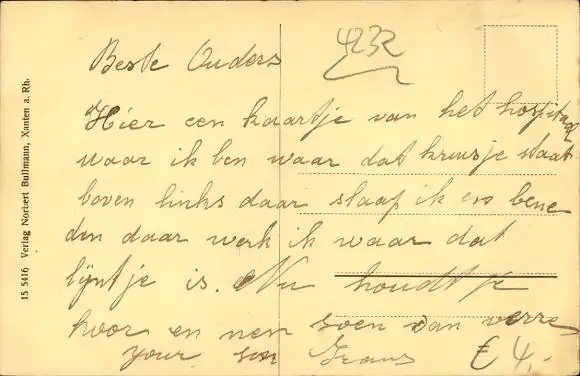 4232
Beste Ouders
Hier een kaartje van het hospitaal
waar ik ben waar dat kruisje staat
boven links daar slaap ik en bene
den daar werk ik waar dat
lijntje is. Nu houdt je
hvor en nen soen van verre
your son Frans
€ 4,-
15 5416 Verlag Norbert Bullmann, Xanten a. Rh.